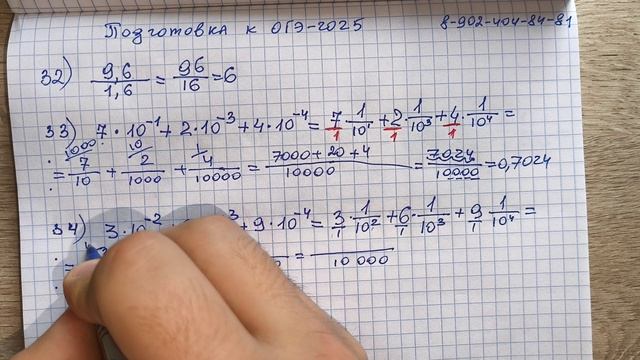 Подготовка к ОГЭ-2025 8-902-404-84-81
32) 9,6/1,6 = 96/16 = 6
33) 7·10⁻¹ + 2·10⁻³ + 4·10⁻⁴ = 7/1·1/10¹ + 2/1·1/10³ + 4/1·1/10⁴ =
= 1000 7/10 + 10 2/1000 + 1 4/10000 = 7000+20+4/10000 = 7024/10000 = 0,7024
34) 3·10⁻² 3 + 9·10⁻⁴ = 3/1·1/10² + 6/1·1/10³ + 9/1·1/10⁴ =
= = /10 000